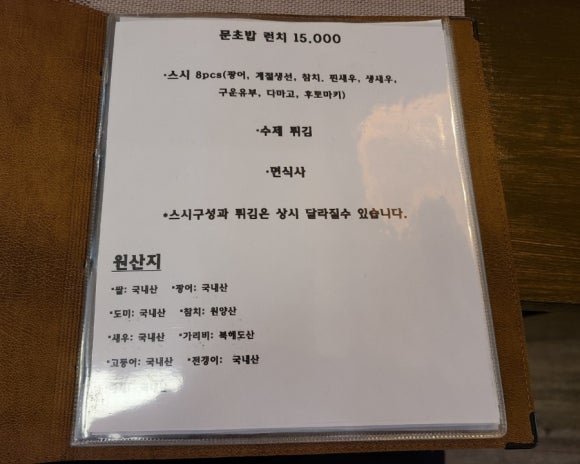 문초밥 런치 15.000
·스시 8pcs(광어, 계절생선, 참치. 찐새우, 생새우,
구운유부, 다마고, 후토마키)
·수제 튀김
·면식사
*스시구성과 튀김은 상시 달라질수 있습니다.
원산지
*쌀: 국내산 *광어: 국내산
*도미: 국내산 *참치: 원양산
*새우: 국내산 *가리비: 북해도산
*고등어: 국내산 *전갱이: 국내산